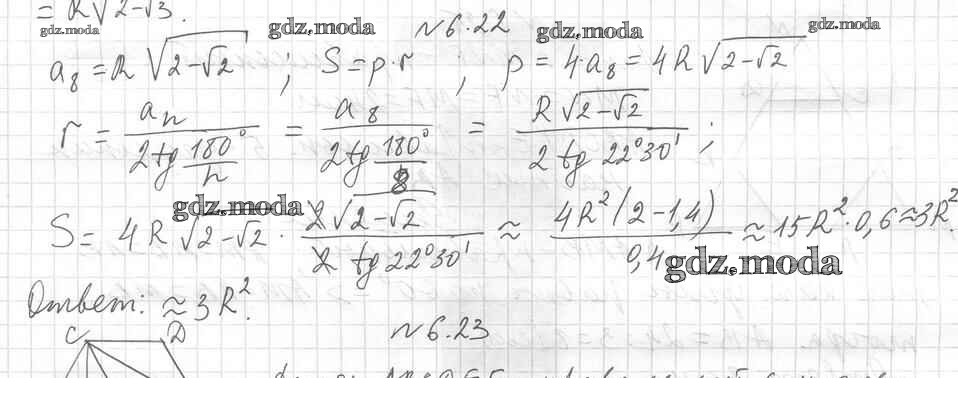 = R√2-√3.
gdz.moda gdz.moda №6.22 gdz.moda gdz.moda
a₈ = R √2-√2 ; S = p·r ; p = 4·a₈ = 4R√2-√2
r = aₙ / 2tg 180°/n = a₈ / 2tg 180°/8 = R√2-√2 / 2 tg 22°30' ;
gdz.moda
S = 4R√2-√2 · 2√2-√2 / 2 tg 22°30' ≈ 4R²(2-1,4) / 0,4 ≈ 15R²·0,6≈3R².
gdz.moda
Ответ: ≈3R².
№6.23
C D